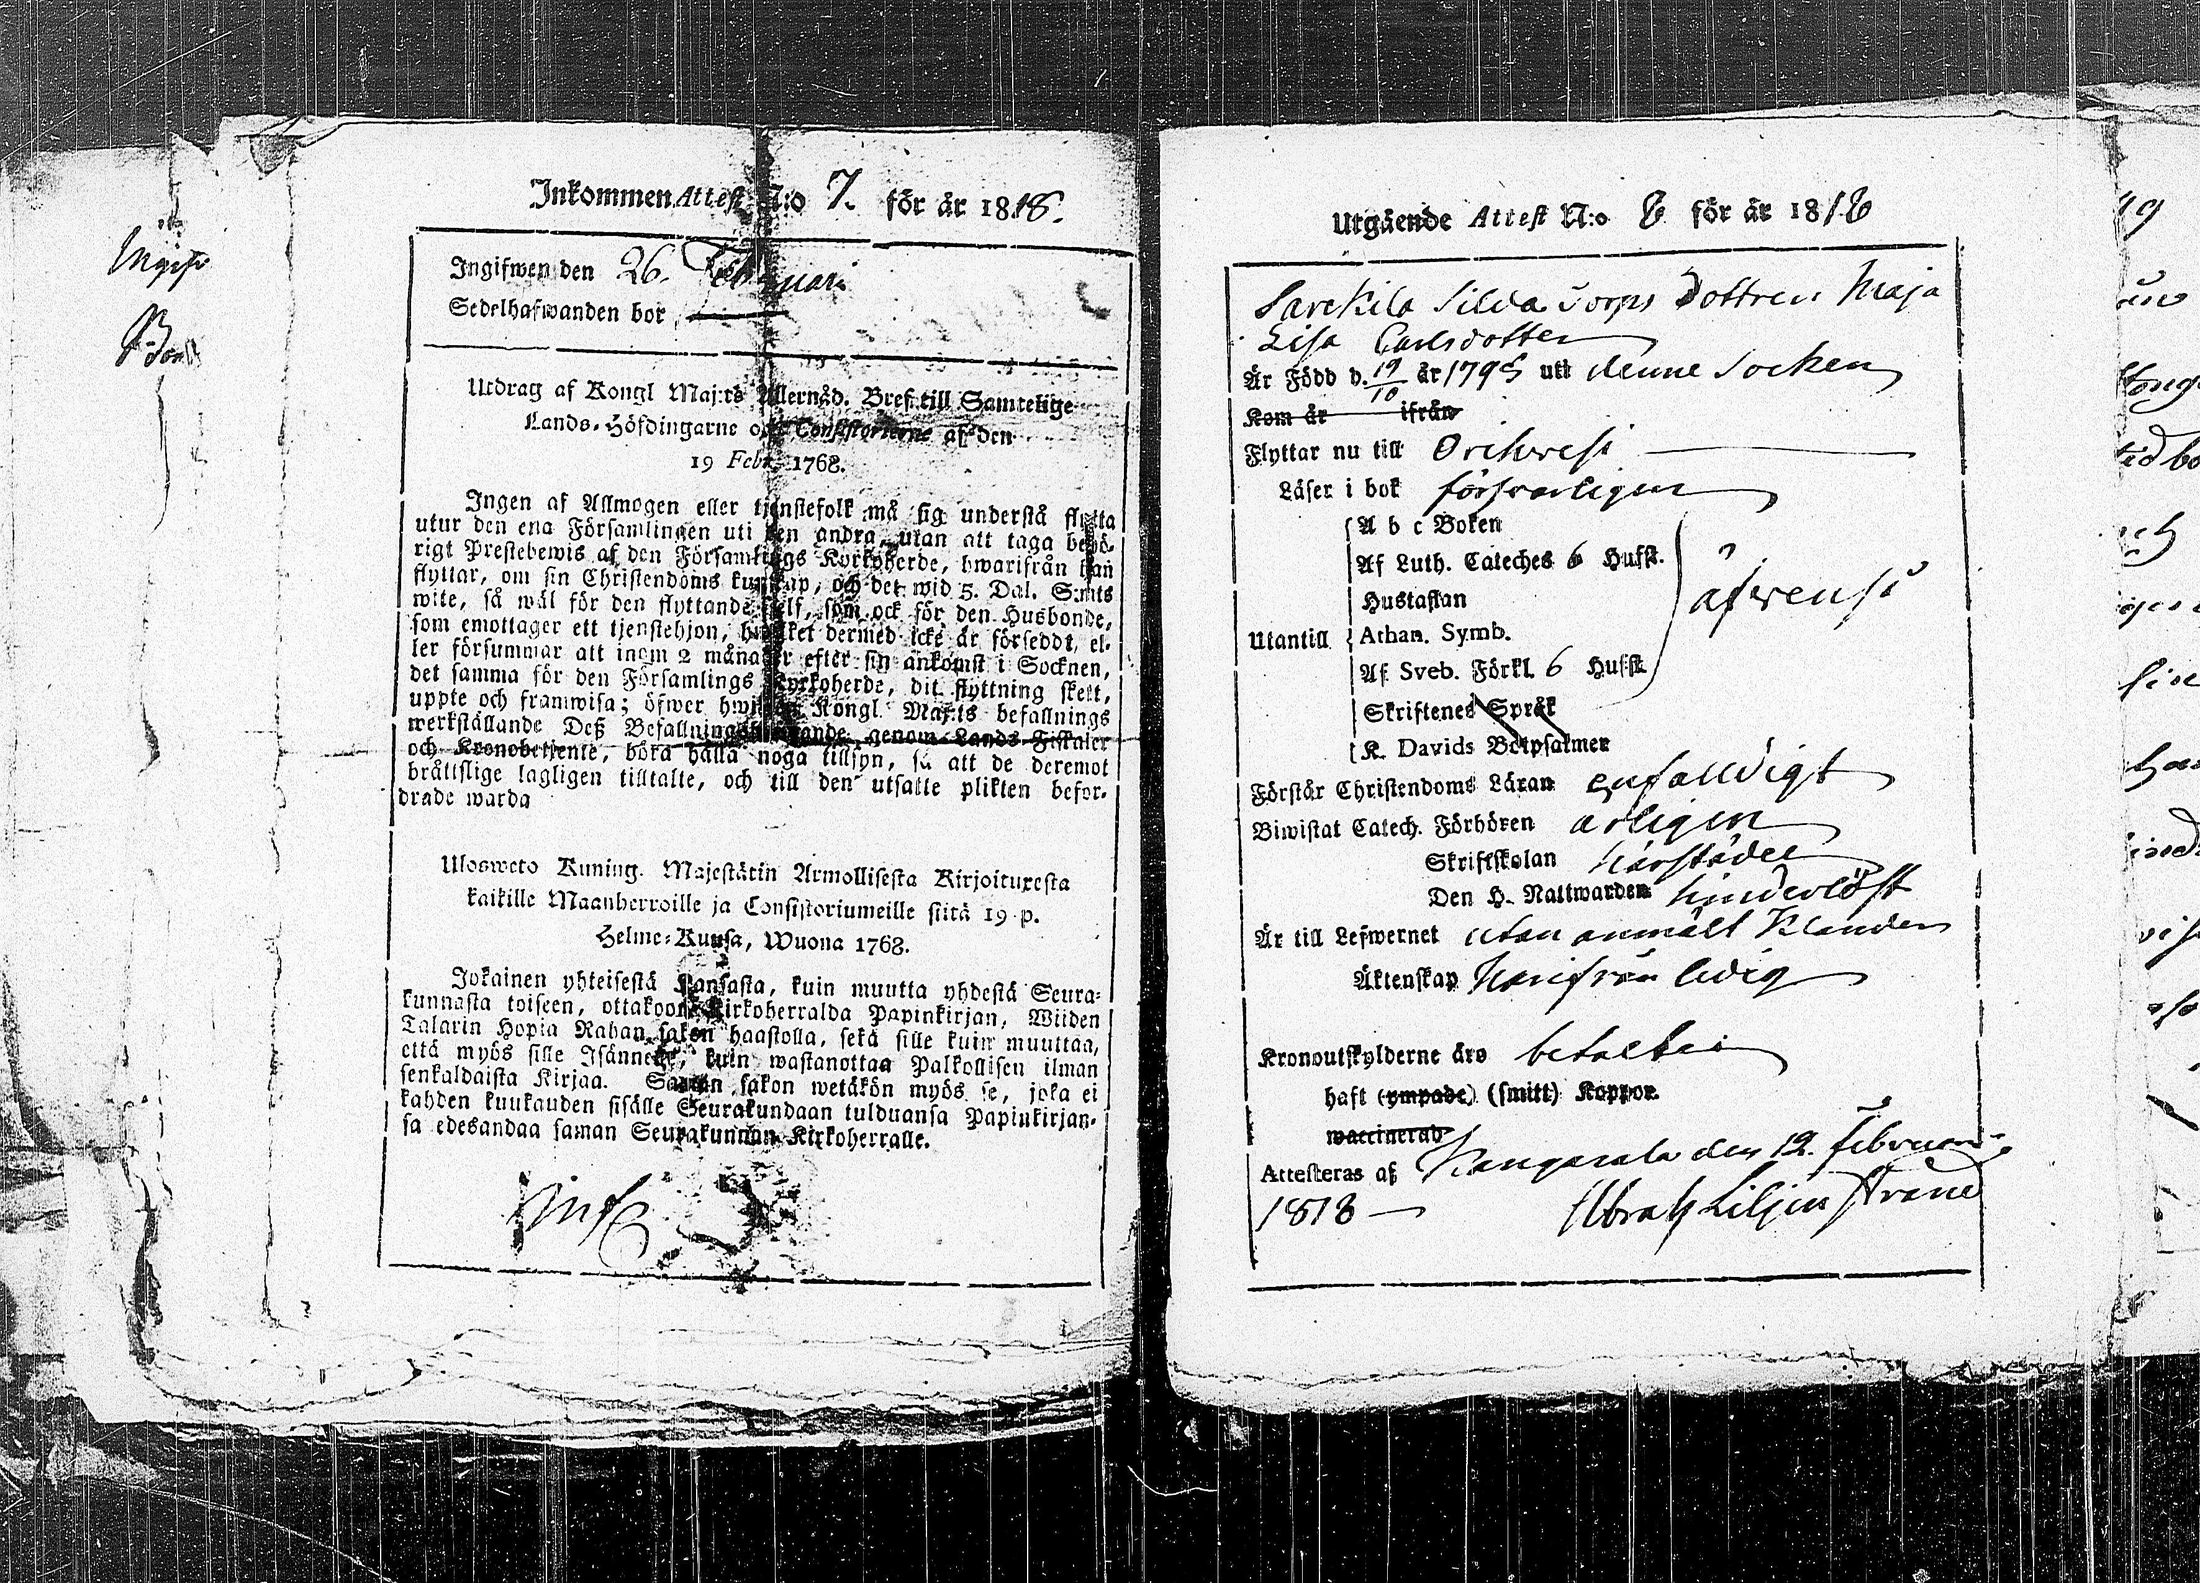 Inkommen Attest N:o 7. för år 1818.
Ingifwen den 26. Februari
Sedelhafwanden bor
Utdrag af Kongl Maj:ts Allernåd. Bref till Samtelige
Lands-Höfdingarne och Consistorierne af den
19 Febr. 1768.
Ingen af Allmogen eller tjenstefolk må sig understå flytta
utur den ena Församlingen uti den andra, utan att taga behö-
rigt Prestebewis af den Församlings Kyrkoherde, hwarifrån han
flyttar, om sin Christendoms kunskap, och det wid 5. Dal. S:mts
wite, så wäl för den flyttande self, som ock för den Husbonde,
som emottager ett tjenstehjon, hwilket dermed icke är förseddt, el-
ler försummar att inom 2 månader efter sin ankomst i Socknen,
det samma för den Församlings Kyrkoherde, dit flyttning skett,
uppte och framwisa; öfwer hwilken Kongl. Maj:ts befallnings
werkställande Deß Befallningshafwande genom Lands Fiskaler
och Kronobetjente, böra hålla noga tillsyn, så att de deremot
bråttslige lagligen tilltalte, och till den utsatte plikten befor-
drade warda
Ulosweto Kuning. Majestätin Armollisesta Kirjoituxesta
kaikille Maanherroille ja Consistoriumeille siitä 19 p.
Helme-Kuusa, Wuona 1768.
Jokainen yhteisestä Kansasta, kuin muutta yhdestä Seura-
kunnasta toiseen, ottakoon Kirkoherralda Papinkirjan, Wiiden
Talarin Hopia Rahan sakon haastolla, sekä sille kuin muuttaa,
että myös sille Isännelle, kuin wastanottaa Palkollisen ilman
senkaldaista Kirjaa. Saman sakon wetäkön myös se, joka ei
kahden kuukauden sisälle Seurakundaan tulduansa Papinkirjan-
sa edesandaa saman Seurakunnan Kirkoherralle.
Utgående Attest N:o 6 för år 1818
Sarckila Silda Torps Dottren Maja
Lisa Carlsdotter
Är Född d. 19/10 år 1795 uti denne Socken
Kom år ifrån
Flyttar nu till Orihwesi
Läser i bok försvarligen
A b c Boken
Af Luth. Cateches 6 Hufst.
Hustaflan
Utantill Athan. Symb. äfvenså
Af Sveb. Förkl. 6 Hufst.
Skriftenes Språk
K. Davids Botpsalmer
Förstår Christendoms Läran enfalldigt
Biwistat Catech. Förhören årligen
Skriftskolan härstädes
Den H. Nattwarden hinderlöst
Är till Lefwernet utan anmält klander
Äktenskap härifrån ledig
Kronoutskylderne äro betalta
haft (ympade) (smitt) Koppor.
waccinerad
Attesteras af Kangasala den 12. Februari
1818 Abrah Liljenstrand